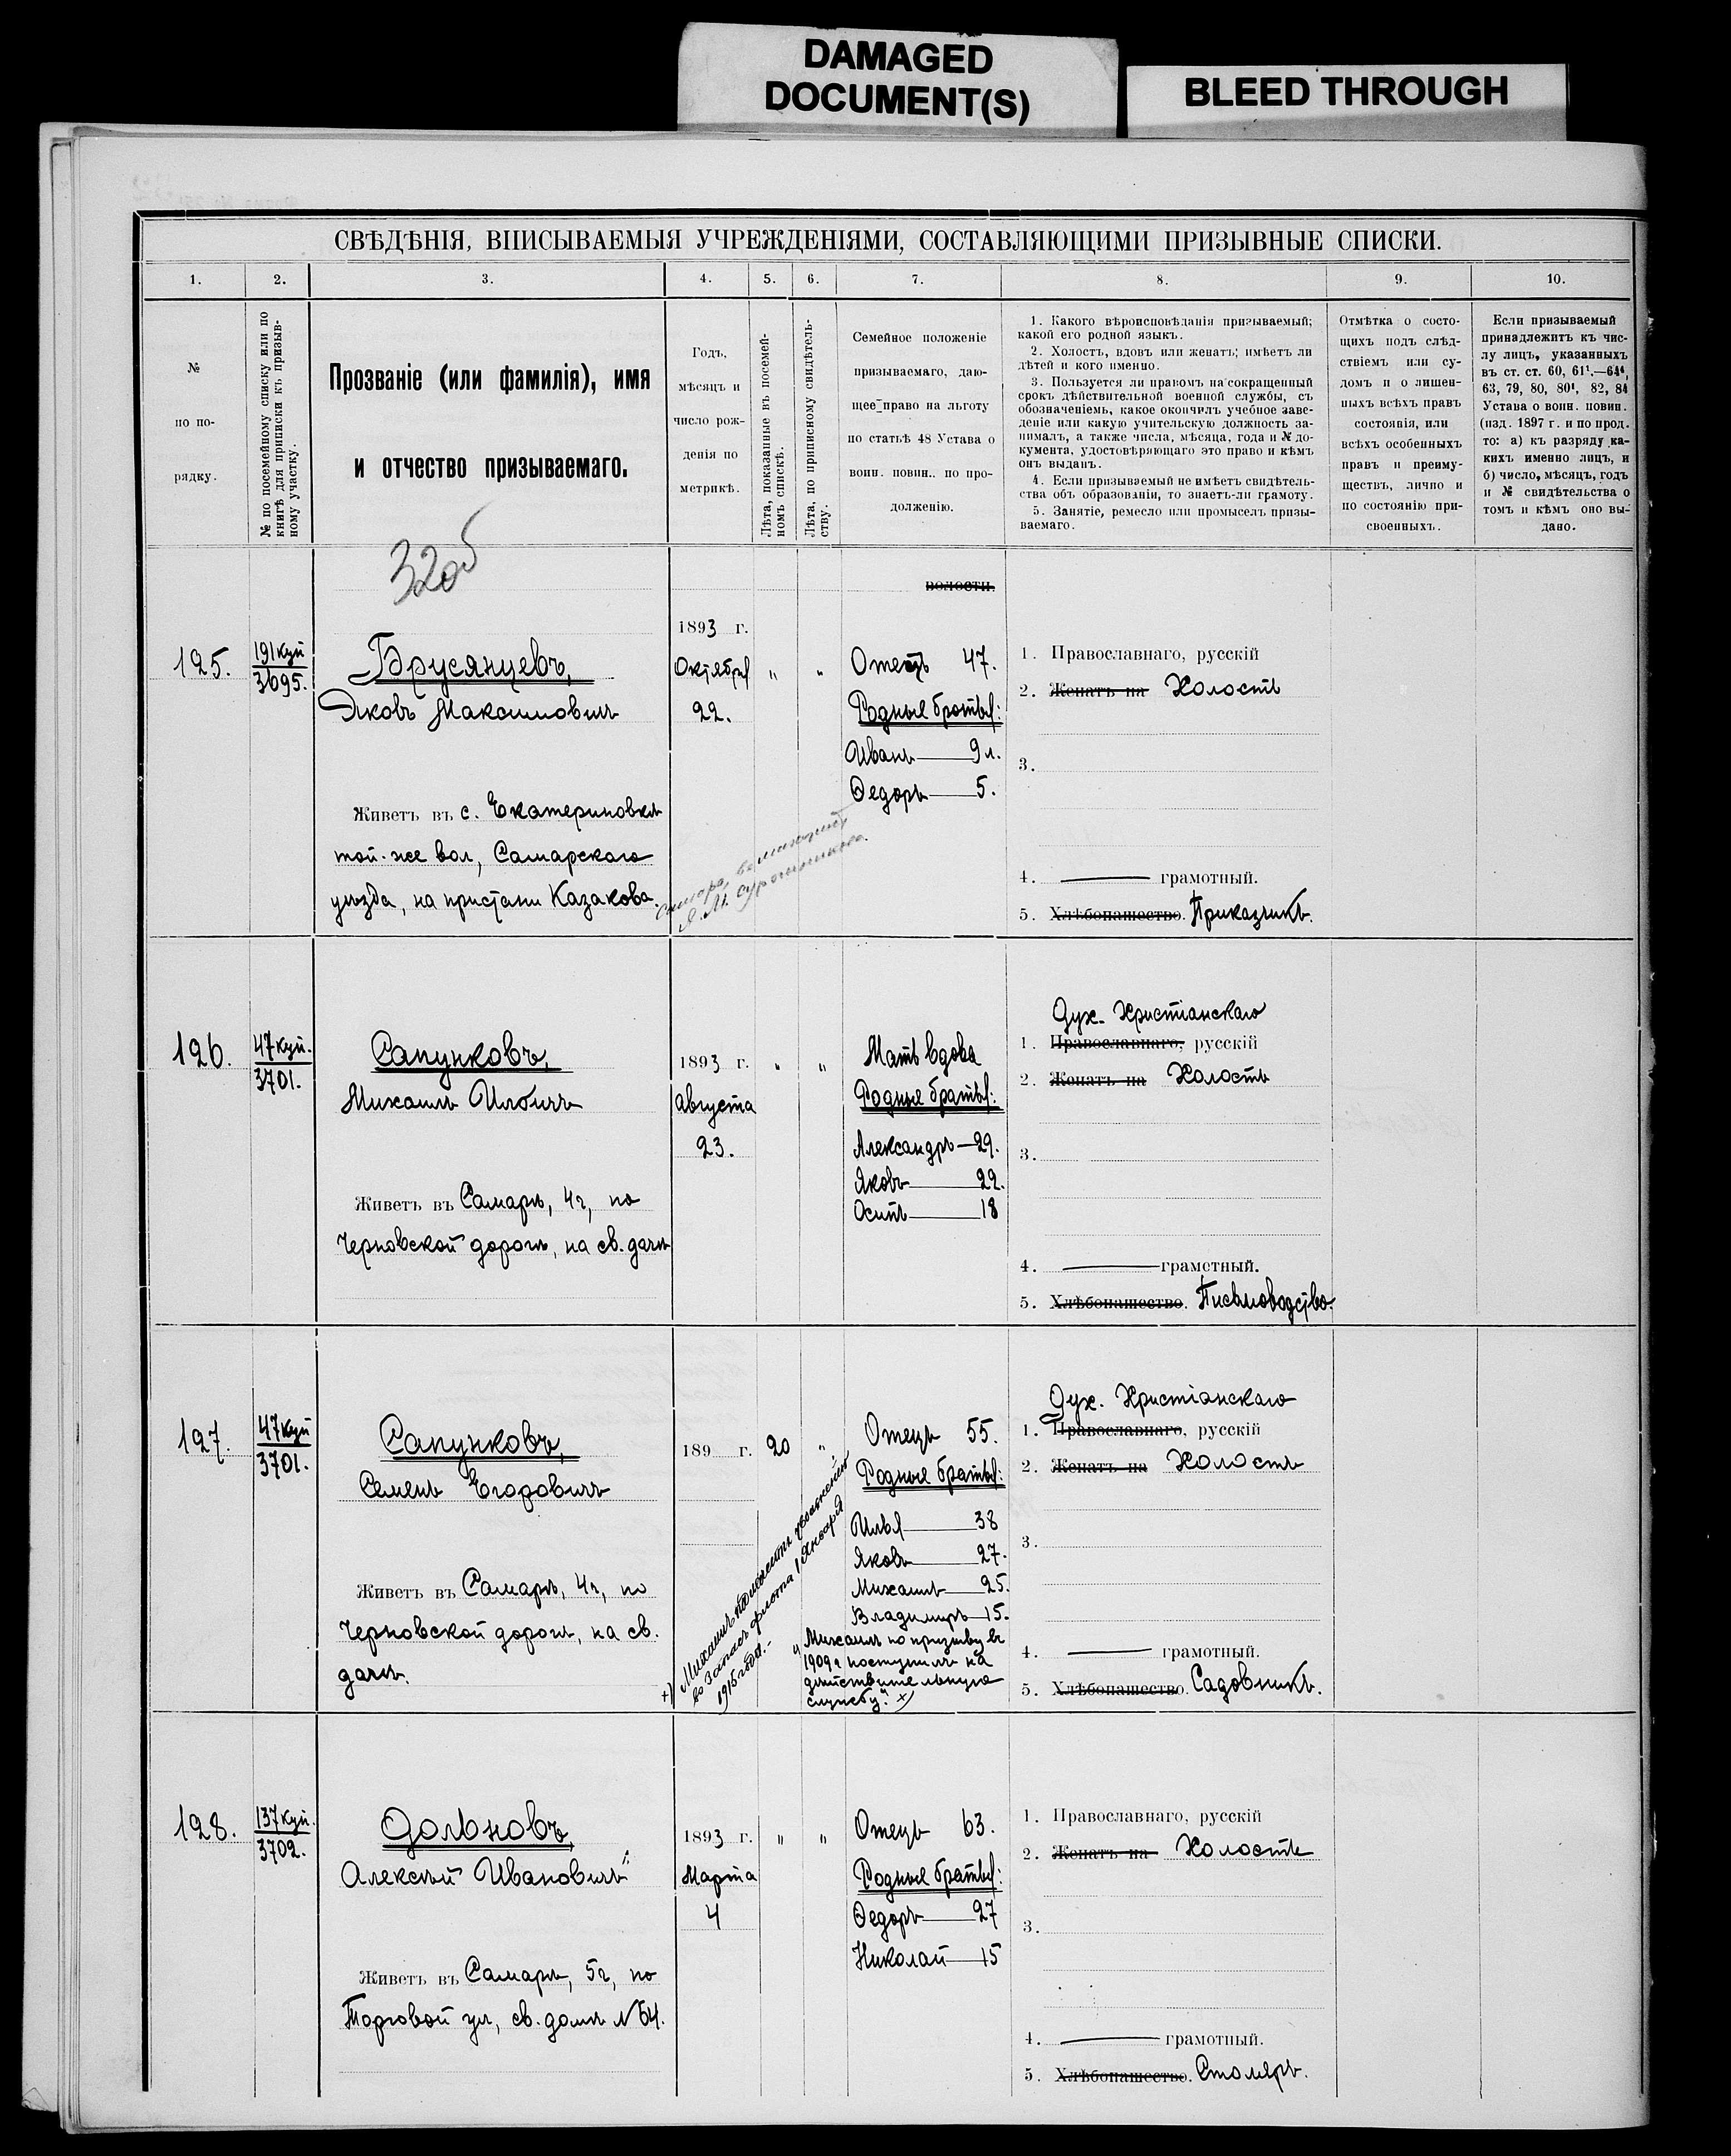 DAMAGED
DOCUMENT(S)
BLEED THROUGH
СВѢДѢНІЯ, ВПИСЫВАЕМЫЯ УЧРЕЖДЕНІЯМИ, СОСТАВЛЯЮЩИМИ ПРИЗЫВНЫЕ СПИСКИ.
1. 2. 3. 4. 5. 6. 7. 8. 9. 10.
№
по по-
рядку.
№ по посемейному списку или по
книгѣ для приписки къ призыв-
ному участку.
Прозваніе (или фамилія), имя
и отчество призываемаго.
Годъ,
мѣсяцъ и
число рож-
денія по
метрикѣ.
Лѣта, показанные въ посемей-
номъ спискѣ.
Лѣта, по приписному свидѣтель-
ству.
Семейное положеніе
призываемаго, даю-
щее право на льготу
по статьѣ 48 Устава о
воин. повин.. по про-
долженію.
1. Какого вѣроисповѣданія призываемый;
какой его родной языкъ.
2. Холостъ, вдовъ или женатъ; имѣетъ ли
дѣтей и кого именно.
3. Пользуется ли правомъ на сокращенный
срокъ дѣйствительной военной службы, съ
обозначеніемъ, какое окончилъ учебное заве-
деніе или какую учительскую должность за-
нималъ, а также числа, мѣсяца, года и № до-
кумента, удостовѣряющаго это право и кѣмъ
онъ выданъ.
4. Если призываемый не имѣетъ свидѣтель-
ства объ образованіи, то знаетъ-ли грамоту.
5. Занятіе, ремесло или промыселъ призы-
ваемаго.
Отмѣтка о состо-
щихъ подъ слѣд-
ствіемъ или су-
домъ и о лишен-
ныхъ всѣхъ правъ
состоянія, или
всѣхъ особенныхъ
правъ и преиму-
ществъ, лично и
по состоянію при-
своенныхъ.
Если призываемый
принадлежитъ къ чис-
лу лицъ, указанныхъ
въ ст. ст. 60, 61¹.—64⁴,
63, 79, 80, 80¹, 82, 84
Устава о воин. повин.
(изд. 1897 г. и по прод.
то: а) къ разряду ка-
кихъ именно лицъ, и
б) число, мѣсяцъ, годъ
и № свидѣтельства о
томъ и кѣмъ оно вы-
дано.
32об
волости.
125.
191 куй
3695.
Брусянцевъ,
Яковъ Максимовичъ
Живетъ въ с. Екатериновкѣ
той-же вол, Самарскаго
уѣзда, на пристани Казакова.
1893 г.
Октября
22.
" "
Отецъ 47.
Родные братья:
Иванъ 9 л.
Ѳедоръ 5.
1. Православнаго, русскій
2. Женатъ на Холостъ
3.
4. грамотный.
5. Хлѣбопашество. Приказчикъ.
126.
47 куй.
3701.
Сапунковъ,
Михаилъ Ильичъ
Живетъ въ Самарѣ, 4ч, по
Черновской дорогѣ, на св. дачѣ
1893 г.
Августа
23.
" "
Мать вдова
Родные братья:
Александръ—29.
Яковъ 22.
Осипъ 18
Дух. Христіанскаго
1. Православнаго, русскій
2. Женатъ на Холостъ
3.
4. грамотный.
5. Хлѣбопашество. Письмоводство.
127.
47 куй
3701.
Сапунковъ,
Семенъ Егоровичъ
Живетъ въ Самарѣ, 4ч, по
Черновской дорогѣ, на св.
дачѣ.
189 г. 20 "
Отецъ 55.
Родные братья:
Илья 38
Яковъ 27.
Михаилъ 25.
Владимиръ 15.
Михаилъ по призыву въ
1909 г поступилъ на
дѣйствительную
службу." х)
х) Михаилъ подлежитъ увольненію
въ запасъ флота 1 Января
1915 года.
Дух. Христіанскаго
1. Православнаго, русскій
2. Женатъ на Холостъ
3.
4. грамотный.
5. Хлѣбопашество. Садовникъ.
128.
137 куй.
3702.
Дольновъ,
Алексѣй Ивановичъ
Живетъ въ Самарѣ, 5ч, по
Торговой ул, св. домъ № 64.
1893 г.
Марта
4
" "
Отецъ 63.
Родные братья:
Ѳедоръ 27
Николай 15
1. Православнаго, русскій
2. Женатъ на Холостъ
3.
4. грамотный.
5. Хлѣбопашество. Столяръ.